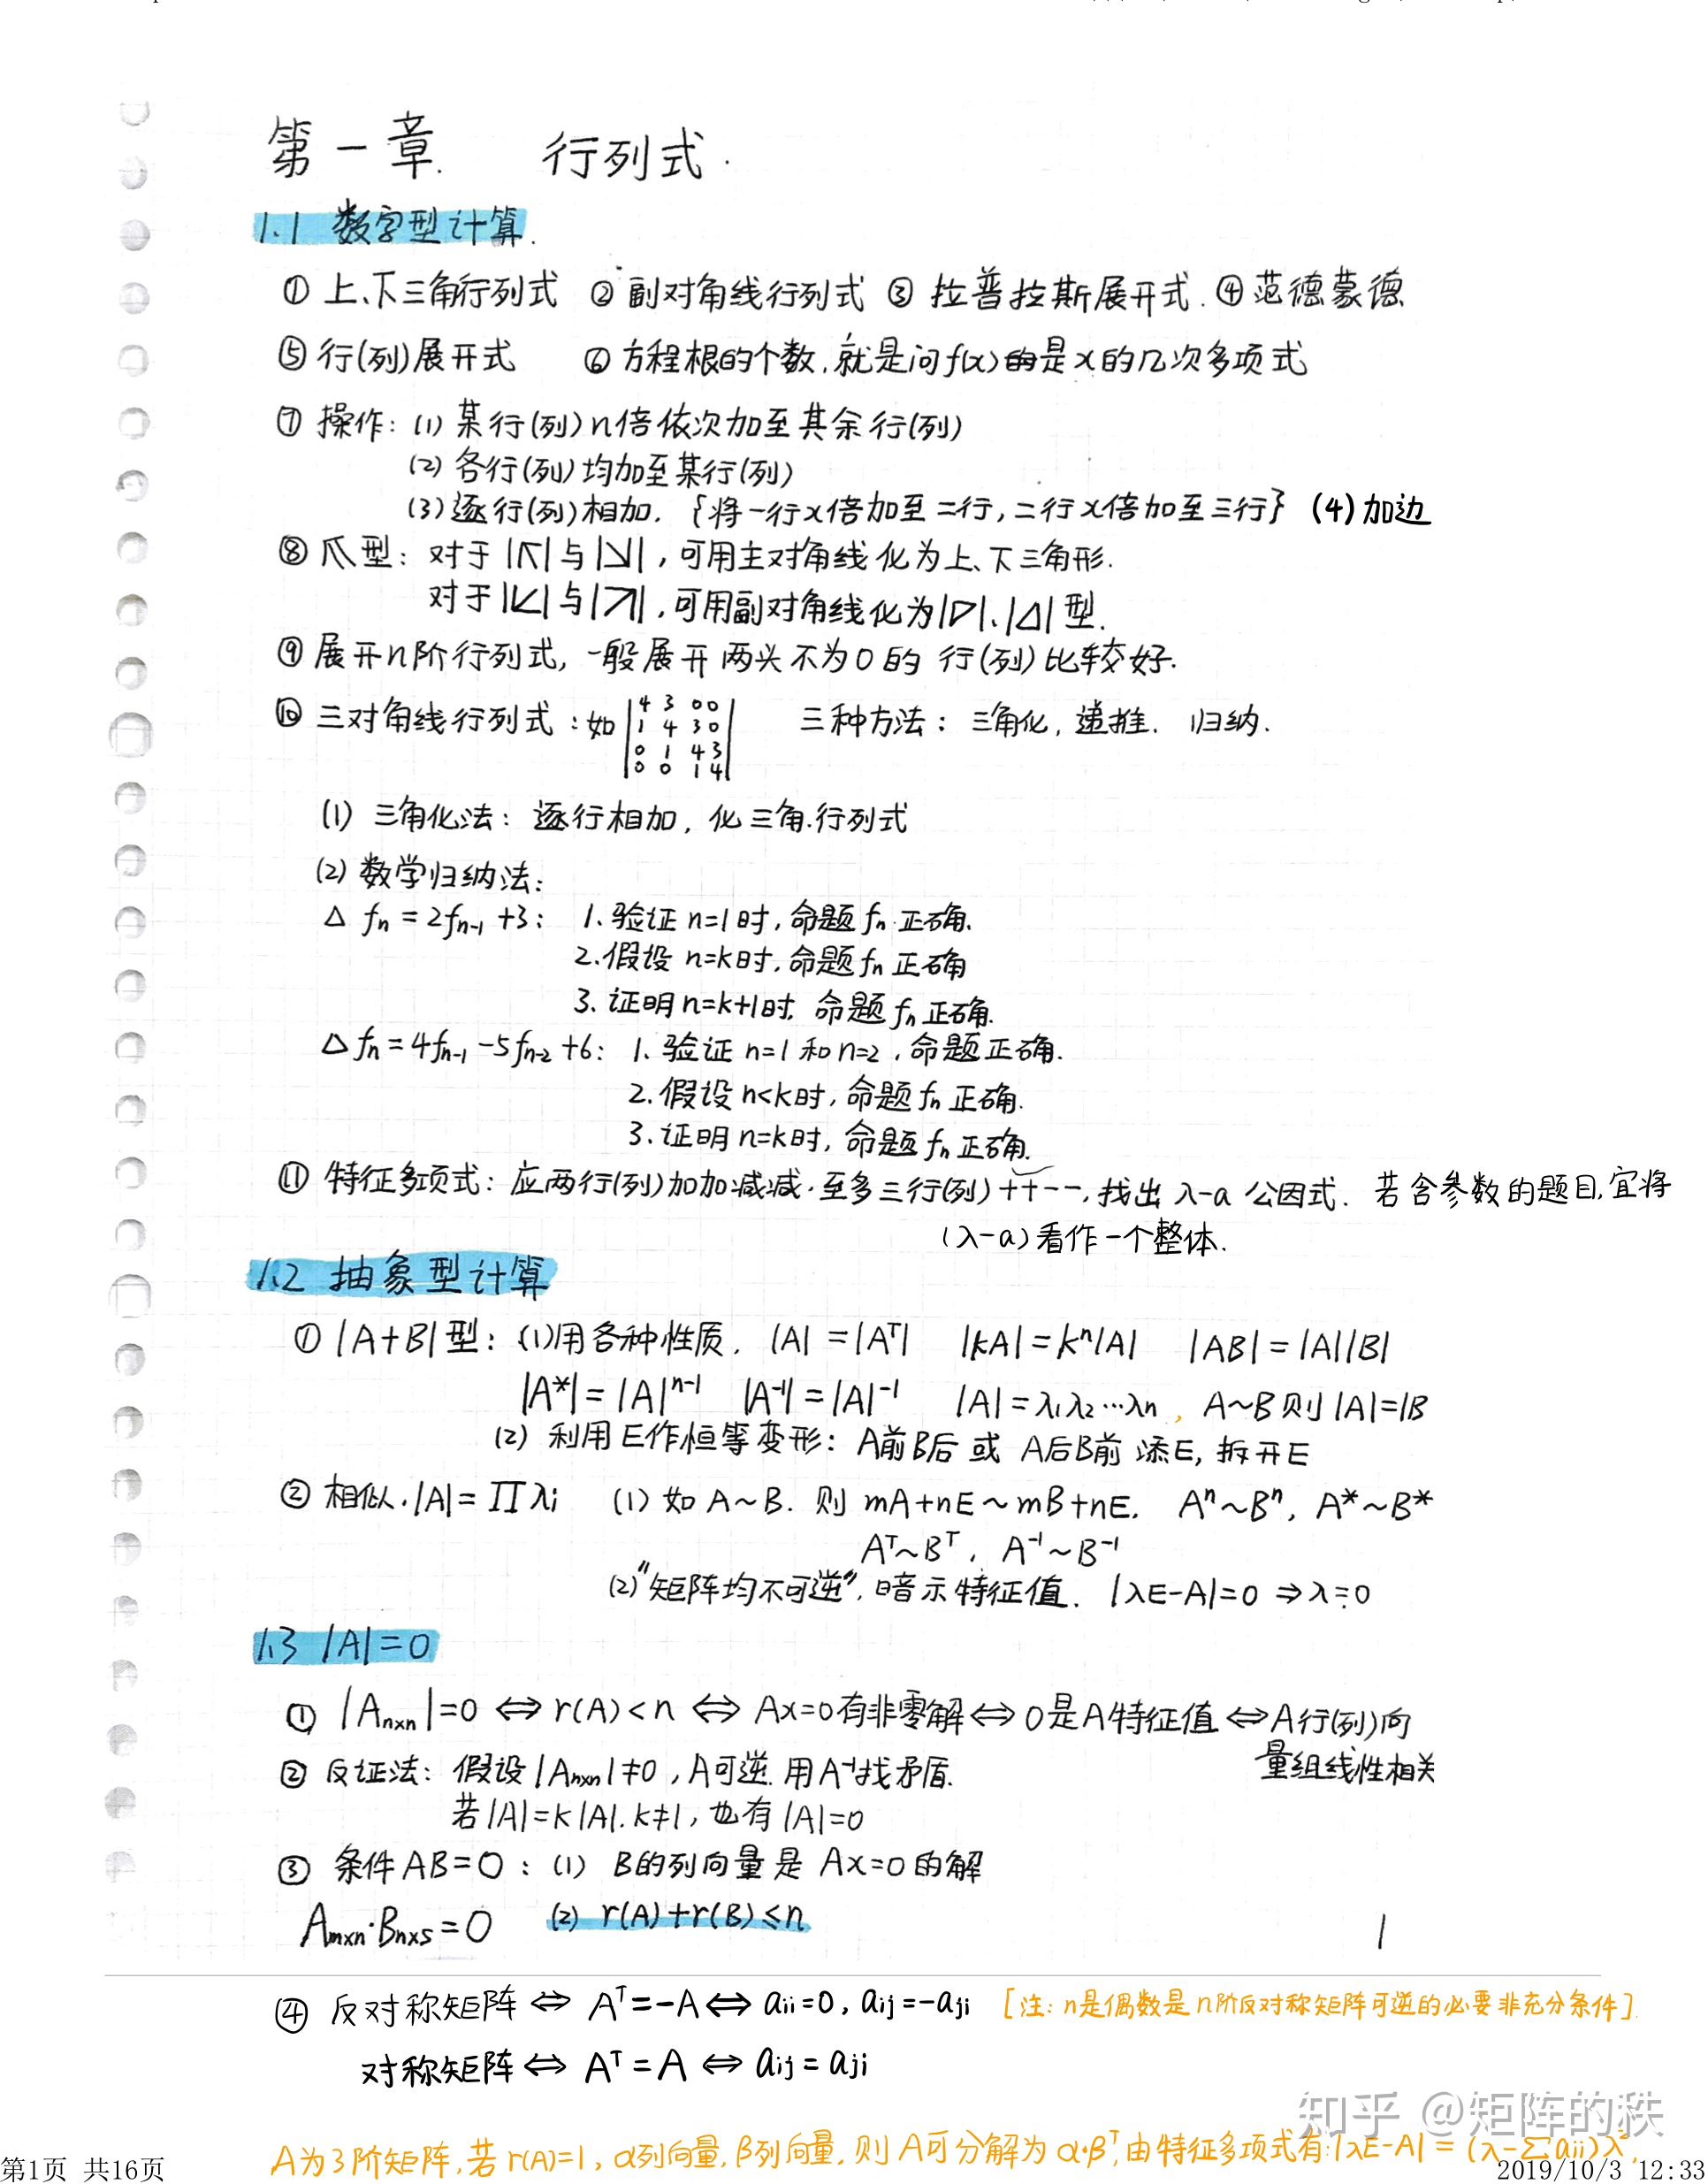 第一章. 行列式.
1.1 数字型计算.
① 上、下三角行列式 ② 副对角线行列式 ③ 拉普拉斯展开式. ④ 范德蒙德
⑤ 行(列)展开式 ⑥ 方程根的个数,就是问f(x)是x的几次多项式
⑦ 操作: (1) 某行(列)n倍依次加至其余行(列)
(2) 各行(列)均加至某行(列)
(3) 逐行(列)相加. {将一行x倍加至二行,二行x倍加至三行} (4)加边
⑧ 爪型: 对于 与 ,可用主对角线化为上、下三角形.
对于 与 ,可用副对角线化为|▽|、|△|型.
⑨ 展开n阶行列式, 一般展开两头不为0的行(列)比较好.
⑩ 三对角线行列式: 如 三种方法: 三角化, 递推. 归纳.
4 3 0 0
1 4 3 0
0 1 4 3
0 0 1 4
(1) 三角化法: 逐行相加, 化三角行列式
(2) 数学归纳法:
△ fₙ = 2fₙ₋₁ +3: 1.验证 n=1时,命题fₙ正确.
2.假设 n=k时,命题fₙ正确
3.证明n=k+1时,命题fₙ正确.
△ fₙ = 4fₙ₋₁ -5fₙ₋₂ +6: 1.验证 n=1和n=2,命题正确.
2.假设 n<k时,命题fₙ正确.
3.证明 n=k时,命题fₙ正确.
⑪ 特征多项式: 应两行(列)加加减减.至多三行(列)++--,找出 λ-a 公因式. 若含参数的题目,宜将
(λ-a)看作一个整体.
1.2 抽象型计算
① |A+B|型: (1)用各种性质. |A|=|Aᵀ| |kA|=kⁿ|A| |AB|=|A||B|
|A*|=|A|ⁿ⁻¹ |A⁻¹|=|A|⁻¹ |A|=λ₁λ₂…λₙ , A~B则|A|=|B
(2) 利用E作恒等变形: A前B后 或 A后B前 添E, 拆开E
② 相似.|A|=∏λi (1) 如 A~B. 则 mA+nE~mB+nE. Aⁿ~Bⁿ, A*~B*
Aᵀ~Bᵀ, A⁻¹~B⁻¹
(2)"矩阵均不可逆",暗示特征值. |λE-A|=0 ⇒λ=0
1.3 |A|=0
① |Aₙₓₙ|=0 ⇔ r(A)<n ⇔ Ax=0有非零解⇔ 0是A特征值 ⇔A行(列)向
量组线性相关
② 反证法: 假设|Aₙₓₙ|≠0, A可逆. 用A⁻¹找矛盾.
若|A|=k|A|. k≠1, 也有|A|=0
③ 条件AB=0: (1) B的列向量是 Ax=0的解
Aₘₓₙ·Bₙₓₛ=0 (2) r(A)+r(B)≤n
1
④ 反对称矩阵 ⇔ Aᵀ=-A⇔ aii=0, aij=-aji [注: n是偶数是n阶反对称矩阵可逆的必要非充分条件].
对称矩阵⇔ Aᵀ=A ⇔ aij=aji
知乎 @矩阵的秩
A为3阶矩阵,若r(A)=1, α列向量,β列向量,则A可分解为α·βᵀ,由特征多项式有:|λE-A|=(λ-∑aii)λ²,
第1页 共16页
2019/10/3 12:33